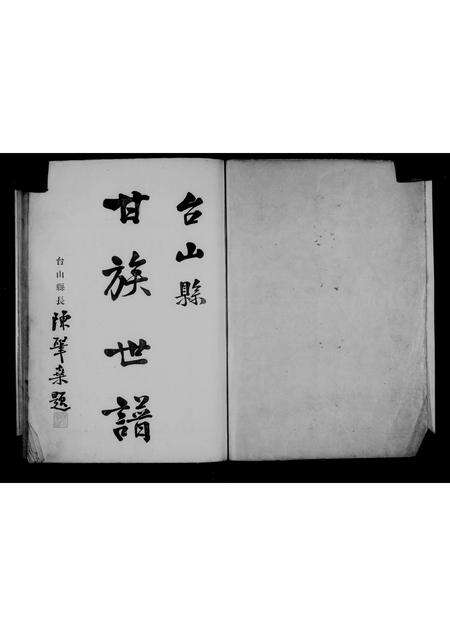 台山縣
甘族世譜
台山縣長
陳肇燊題